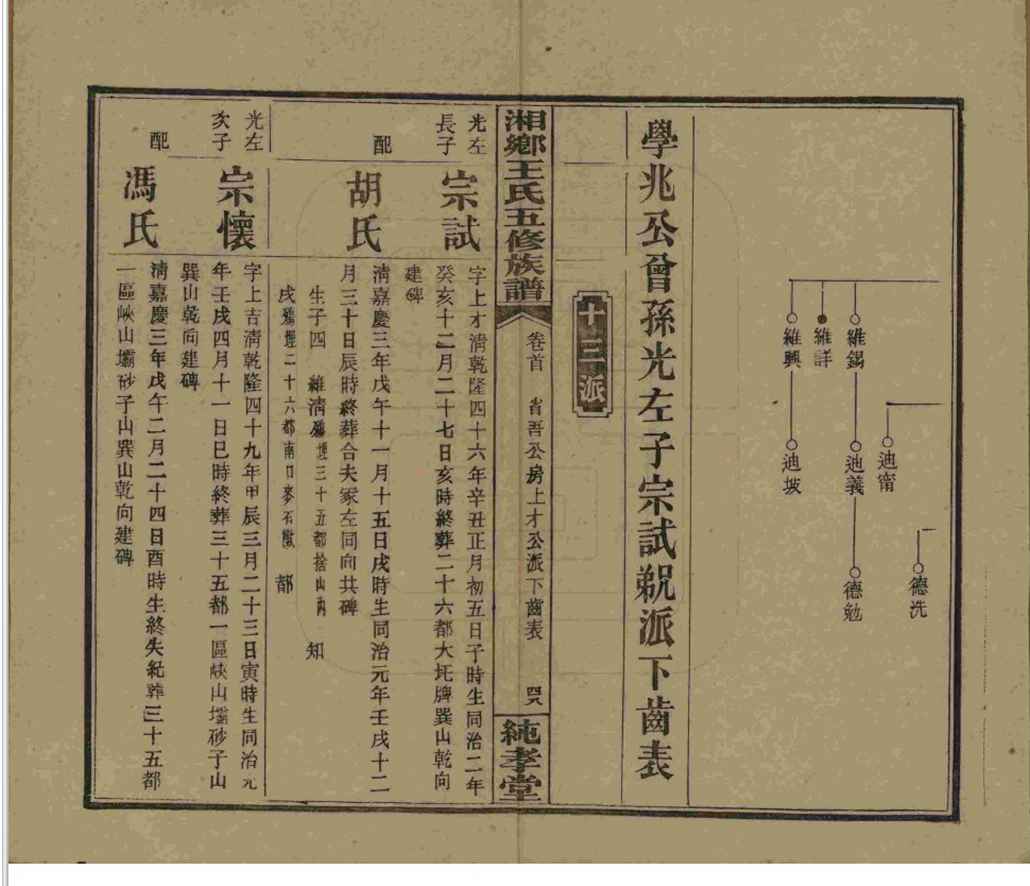 德洗
迪甯
維錫
迪義
德勉
維詳
維興
迪坡
學兆公曾孫光左子宗試派下齒表
十三派
湘鄉王氏五修族譜
卷首
省吾公房上才公派下齒表
四八
純孝堂
光左
長子
宗試
字上才清乾隆四十六年辛丑正月初五日子時生同治二年
癸亥十二月二十七日亥時終葬二十六都大坵牌巽山乾向
建碑
配
胡氏
清嘉慶三年戊午十一月十五日戌時生同治元年壬戌十二
月三十日辰時終葬合夫冢左同向共碑
生子四
維清
三十五都
知
二十六都南口麥石
都
光左
次子
宗懷
字上吉清乾隆四十九年甲辰三月二十三日寅時生同治元
年壬戌四月十一日巳時終葬三十五都一區峽山壩砂子山
巽山乾向建碑
配
馮氏
清嘉慶三年戊午二月二十四日酉時生終失紀葬三十五都
一區峽山壩砂子山巽山乾向建碑